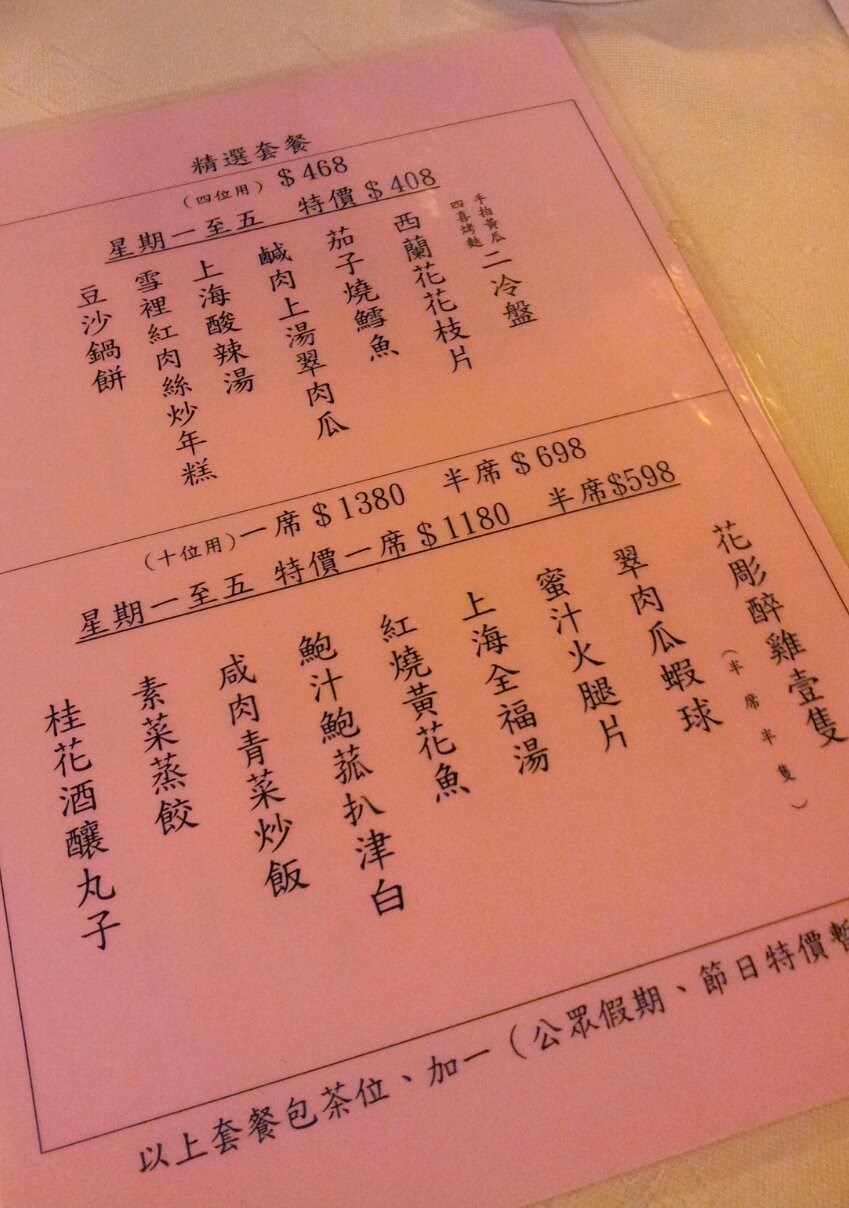 精選套餐
（四位用）$468
星期一至五 特價$408
手拍黃瓜
四喜烤麩
二冷盤
西蘭花花枝片
茄子燒鱈魚
鹹肉上湯翠肉瓜
上海酸辣湯
雪裡紅肉絲炒年糕
豆沙鍋餅
（十位用）一席$1380 半席$698
星期一至五 特價一席$1180 半席$598
花彫醉雞壹隻
（半席半隻）
翠肉瓜蝦球
蜜汁火腿片
上海全福湯
紅燒黃花魚
鮑汁鮑菰扒津白
咸肉青菜炒飯
素菜蒸餃
桂花酒釀丸子
以上套餐包茶位、加一（公眾假期、節日特價暫